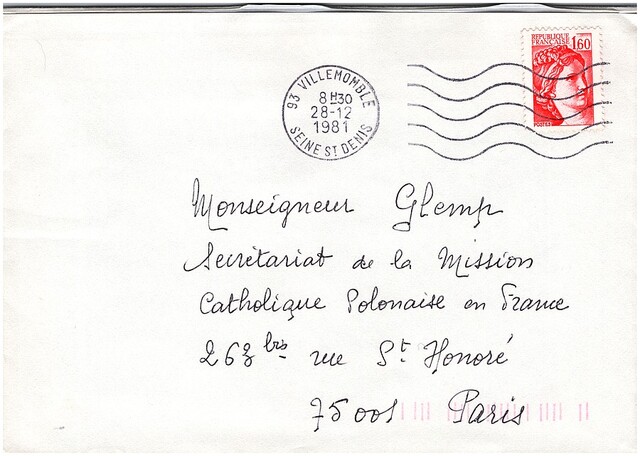 REPUBLIQUE FRANCAISE 1,60
POSTES
93 VILLEMOMBLE
8H30
28-12
1981
SEINE ST DENIS
Monseigneur Glemp
Secrétariat de la Mission
Catholique Polonaise en France
263 bis rue St Honoré
75001 Paris